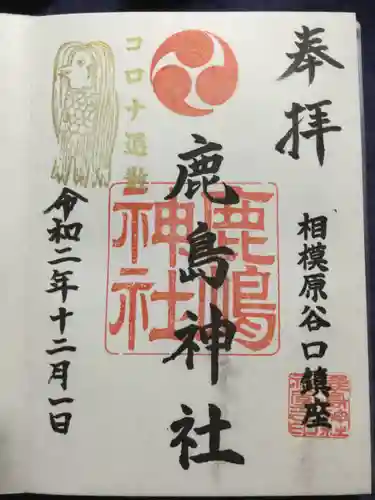 奉拝
相模原谷口鎮座
鹿島神社
鹿嶋
神社
コロナ退散
令和二年十二月一日